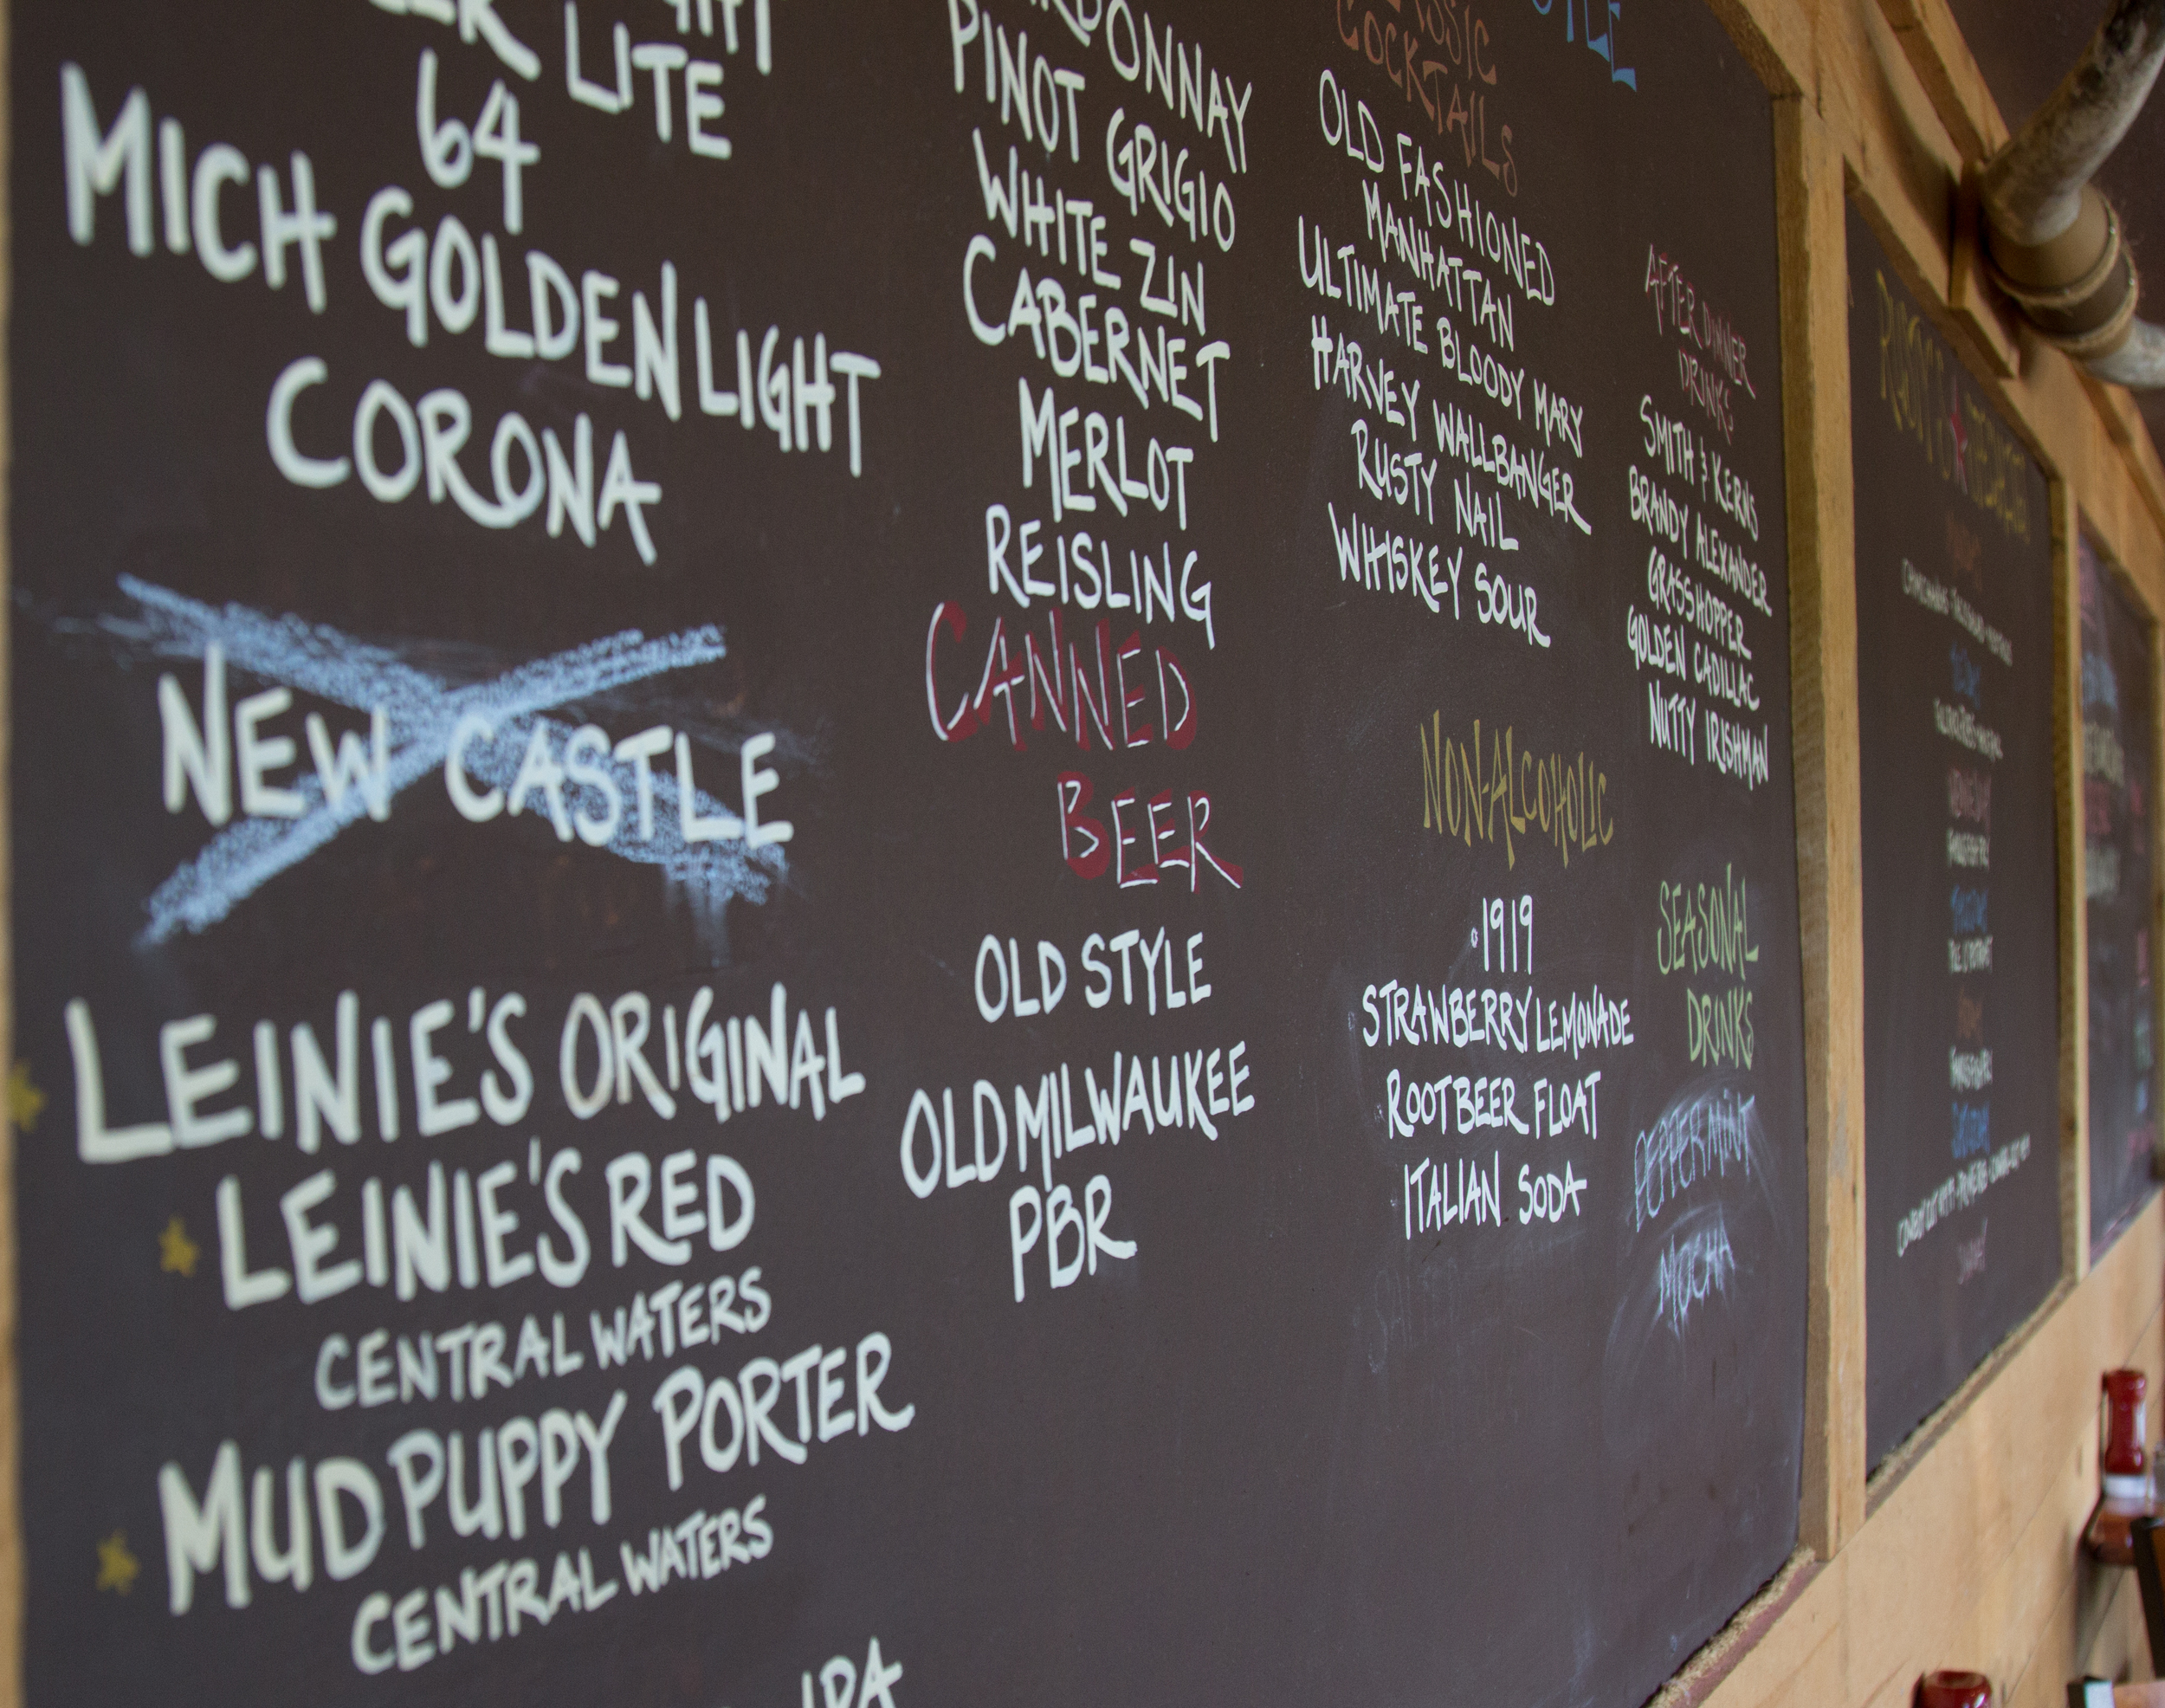 LITE
64
MICH GOLDEN LIGHT
CORONA
NEW CASTLE
LEINIE'S ORIGINAL
LEINIE'S RED
CENTRAL WATERS
MUD PUPPY PORTER
CENTRAL WATERS
IPA
PINOT GRIGIO
WHITE ZIN
CABERNET
MERLOT
REISLING
CANNED
BEER
OLD STYLE
OLD MILWAUKEE
PBR
COCKTAILS
OLD FASHIONED
MANHATTAN
ULTIMATE BLOODY MARY
HARVEY WALLBANGER
RUSTY NAIL
WHISKEY SOUR
NON-ALCOHOLIC
1919
STRAWBERRY LEMONADE
ROOTBEER FLOAT
ITALIAN SODA
AFTER DINNER
DRINKS
SMITH & KERNS
BRANDY ALEXANDER
GRASSHOPPER
GOLDEN CADILLAC
NUTTY IRISHMAN
SEASONAL
DRINKS
PEPPERMINT
MOCHA